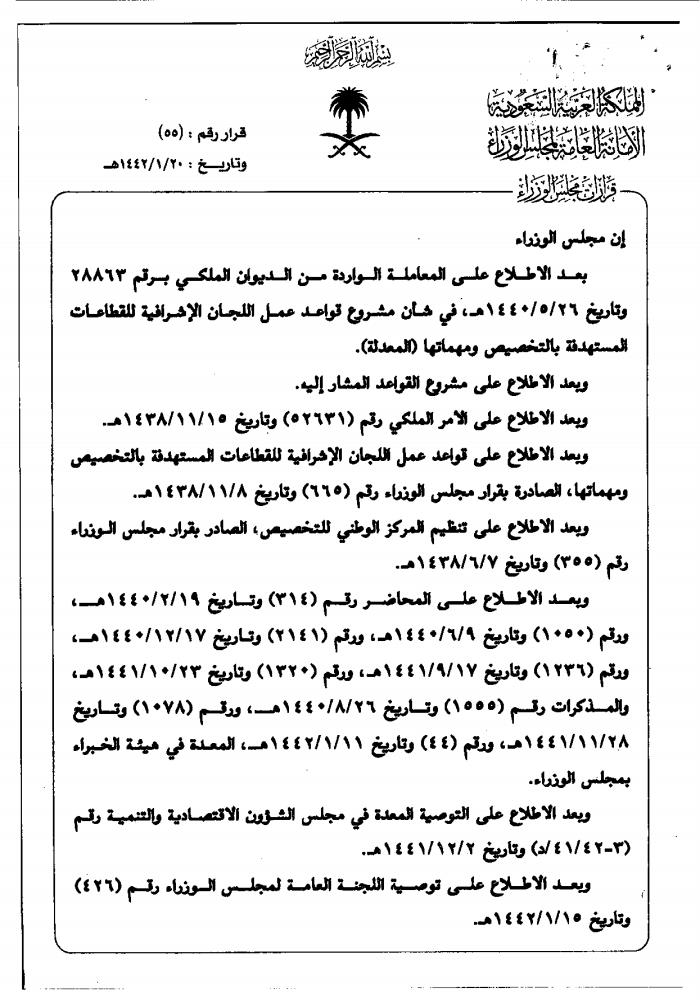 بسم الله الرحمن الرحيم
المملكة العربية السعودية
الأمانة العامة لمجلس الوزراء
قرار رقم : (٥٥)
وتاريخ : ١٤٤٢/١/٢٠هـ
قرارات مجلس الوزراء
إن مجلس الوزراء
بعد الاطلاع على المعاملة الواردة من الديوان الملكي برقم ٢٨٨٦٣
وتاريخ ١٤٤٠/٥/٢٦هـ، في شأن مشروع قواعد عمل اللجان الإشرافية للقطاعات
المستهدفة بالتخصيص ومهماتها (المعدلة).
وبعد الاطلاع على مشروع القواعد المشار إليه.
وبعد الاطلاع على الأمر الملكي رقم (٥٢٦٣١) وتاريخ ١٤٣٨/١١/١٥هـ.
وبعد الاطلاع على قواعد عمل اللجان الإشرافية للقطاعات المستهدفة بالتخصيص
ومهماتها، الصادرة بقرار مجلس الوزراء رقم (٦٦٥) وتاريخ ١٤٣٨/١١/٨هـ.
وبعد الاطلاع على تنظيم المركز الوطني للتخصيص، الصادر بقرار مجلس الوزراء
رقم (٣٥٥) وتاريخ ١٤٣٨/٦/٧هـ.
وبعد الاطلاع على المحاضر رقم (٣١٤) وتاريخ ١٤٤٠/٢/١٩هـ،
ورقم (١٠٥٠) وتاريخ ١٤٤٠/٦/٩هـ، ورقم (٢١٤١) وتاريخ ١٤٤٠/١٢/١٧هـ،
ورقم (١٢٣٦) وتاريخ ١٤٤١/٩/١٧هـ، ورقم (١٣٢٠) وتاريخ ١٤٤١/١٠/٢٣هـ،
والمذكرات رقم (١٥٥٥) وتاريخ ١٤٤٠/٨/٢٦هـ، ورقم (١٠٧٨) وتاريخ
١٤٤١/١١/٢٨هـ، ورقم (٤٤) وتاريخ ١٤٤٢/١/١١هـ، المعدة في هيئة الخبراء
بمجلس الوزراء.
وبعد الاطلاع على التوصية المعدة في مجلس الشؤون الاقتصادية والتنمية رقم
(٣-٤١/٤٢/د) وتاريخ ١٤٤١/١٢/٢هـ.
وبعد الاطلاع على توصية اللجنة العامة لمجلس الوزراء رقم (٤٢٦)
وتاريخ ١٤٤٢/١/١٥هـ.